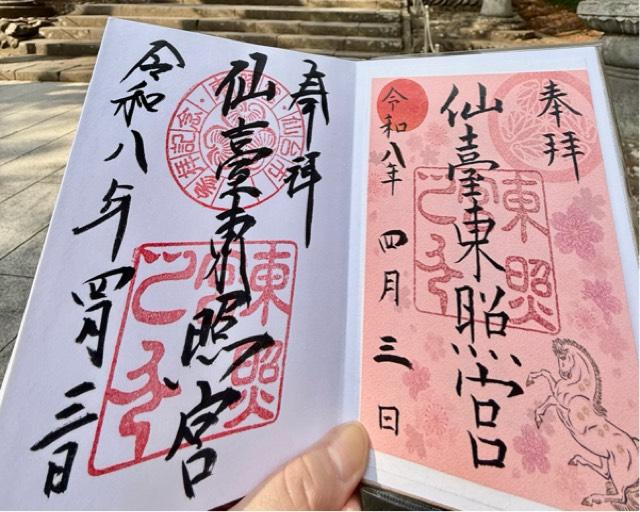 奉拝
仙臺東照宮
令和八年四月三日
東照
奉拝
仙臺東照宮
令和八年
四月三日
東照